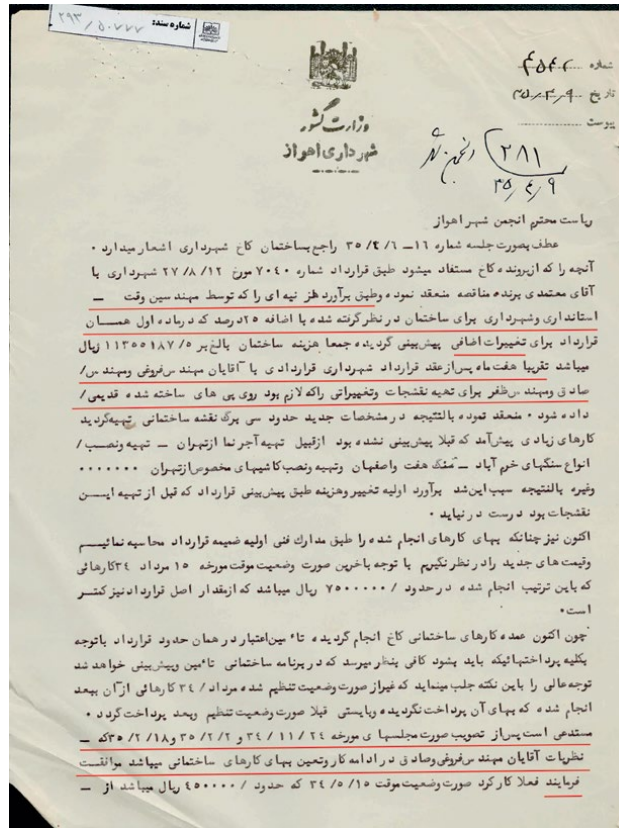 شماره سند: ۲۹۳/۵۰۷۷۷
شماره ۴۵۴۲
تاریخ ۳۵٫۴٫۹
پیوست
وزارت کشور
شهرداری اهواز
۲۸۱
انجمن شهر
۳۵/۴/۹
ریاست محترم انجمن شهر اهواز
عطف بصورت جلسه شماره ۱۶ـ ۳۵/۴/۶ راجع بساختمان کاخ شهرداری اشعار میدارد ۰
آنچه را که ازپرونده کاخ مستفاد میشود طبق قرارداد شماره ۷۰۴۰ مورخ ۲۷/۸/۱۲ شهرداری با
آقای معتمدی برنده مناقصه منعقد نموده وطبق برآورد نیه ای را که توسط مهندسین وقت ـ
استانداری وشهرداری برای ساختمان در نظرگرفته شده با اضافه ۲۵درصد که درماده اول همـــان
قرارداد برای تغییرات اضافی پیش‌بینی گردیده جمعا هزینه ساختمان بالغ بر ۱۱۳۵۵۱۸۷/۵ ریال
میباشد تقریبا هفت ماه پس‌از عقد قرارداد شهرداری قراردادی با آقایان مهندس فروغی ومهندس/
صادقی ومهندس ظفر برای تهیه نقشجات وتغییراتی راکه لازم بود روی پی های ساخته شده قدیمی/
داده شود ۰ منعقد نموده بالنتیجه در مشخصات جدید حدود سی برگ نقشه ساختمانی تهیه گردید
کارهای زیادی پیش‌آمد که قبلا پیش‌بینی نشده بود ازقبیل تهیه آجر نما ازتهران ـ تهیه ونصب/
انواع سنگهای خرم آباد ـ سنگ هفت واصفهان وتهیه ونصب کاشیهای مخصوص ازتهران ۰۰۰۰۰۰۰
وغیره بالنتیجه سبب این‌شد برآورد اولیه تغییر وهزینه طبق پیش‌بینی قرارداد که قبل از تهیه ایــن
نقشجات بود درست در نیاید ۰
اکنون نیز چنانکه بهای کارهای انجام شده را طبق مدارک فنی اولیه ضمیمه قرارداد محاسبه نمائیــم
وقیمت های جدید را در نظر نگیریم با توجه باخرین صورت وضعیت موقت مورخه ۱۵ مرداد ۳۴کارهائی
که باین ترتیب انجام شده در حدود /۷۵۰۰۰۰۰ ریال میباشد که ازمقدار اصل قرارداد نیز کمتــر
است۰
چون اکنون عمده کارهای ساختمانی کاخ انجام گردیده تاٴمین اعتبار در همان حدود قرارداد باتوجه
بکلیه پرداختهائیکه باید بشود کافی بنظر میرسد که در برنامه ساختمانی تاٴمین وپیش‌بینی خواهد شد
توجه عالی را باین نکته جلب مینماید که غیراز صورت وضعیت تنظیم شده مرداد/۳۴ کارهائی ازآن ببعد
انجام شده که بهای آن پرداخت نگردیده وبایستی قبلا صورت وضعیت تنظیم وبعد پرداخت گردد ۰
مستدعی است پس‌از تصویب صورت مجلسهای مورخه ۳۴/۱۱/۲۴ و ۳۵/۲/۲ و ۳۵/۲/۱۸ که ـ
نظریات آقایان مهندس فروغی وصادقی در ادامه کار وتعیین بهای کارهای ساختمانی میباشد موافقت
فرمایند فعلا کارکرد صورت وضعیت موقت ۳۴/۵/۱۵ که حدود /۴۵۰۰۰۰ ریال میباشد از ـ